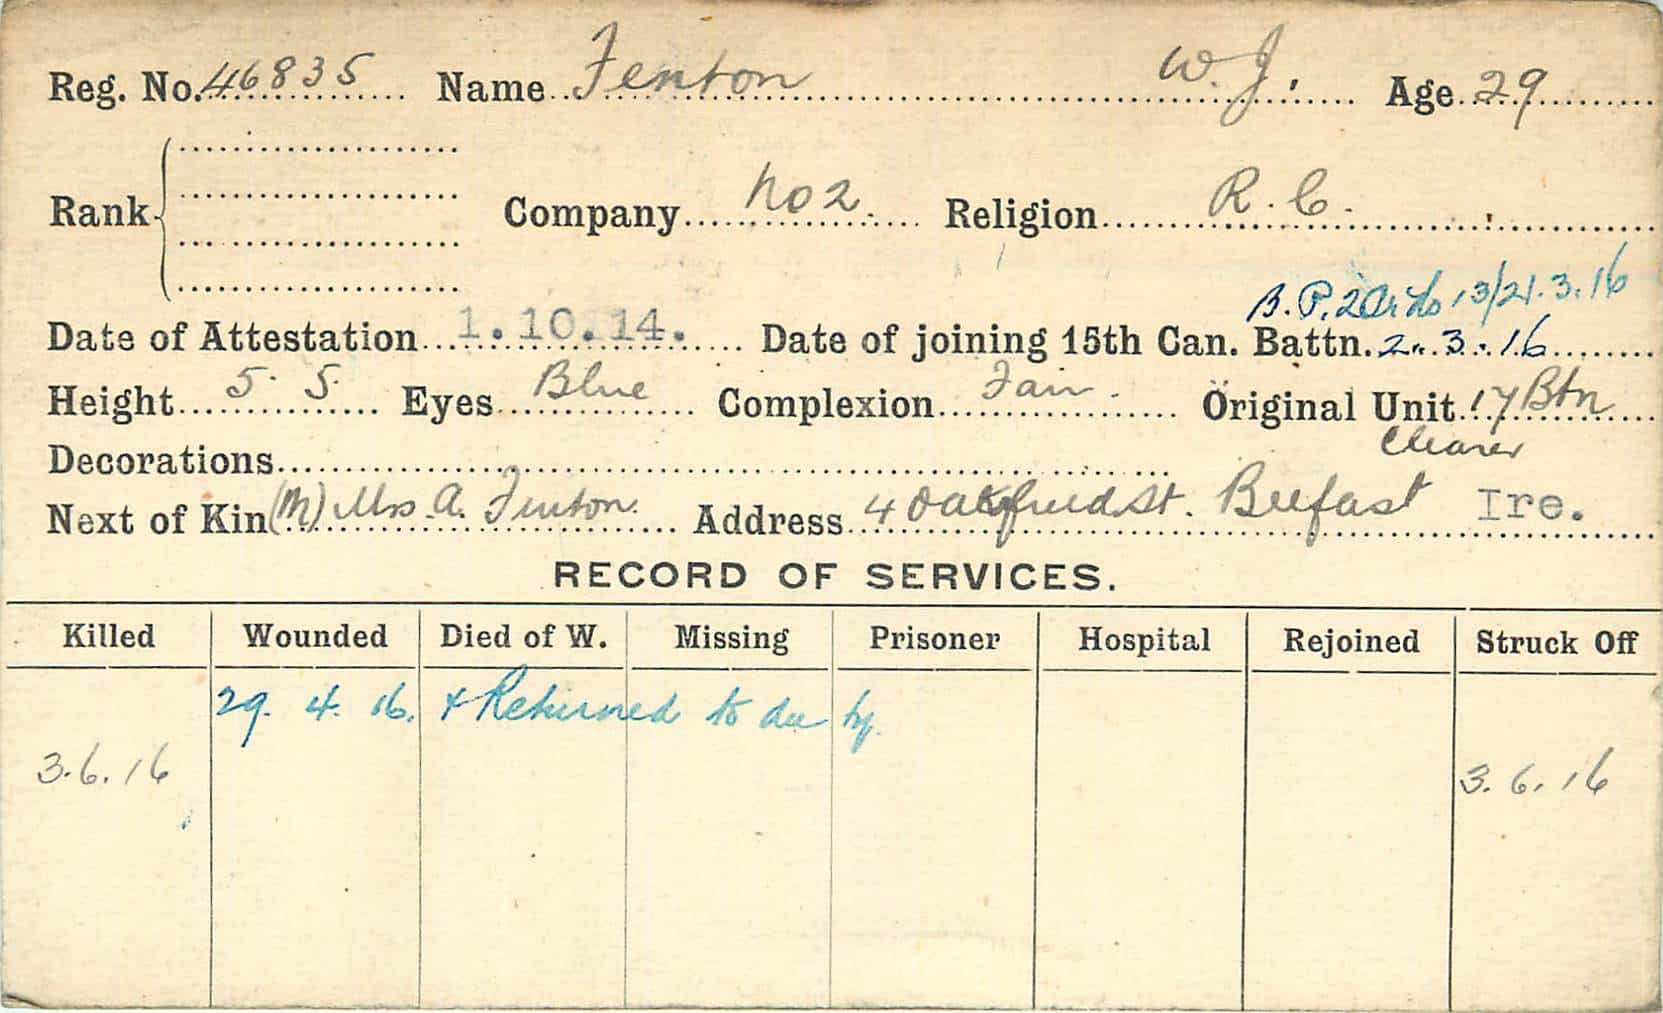 Reg. No. 46835 Name Fenton W. J. Age 29
Rank Company No 2. Religion R. C.
B. P. 2 13/21.3.16
Date of Attestation 1.10.14. Date of joining 15th Can. Battn. 2.3.16
Height 5. 5. Eyes Blue Complexion Fair. Original Unit 17 Btn
Decorations
Next of Kin (M) Mrs. A. Fenton. Address 4 Oakfield St. Belfast Ire.
RECORD OF SERVICES.
Killed Wounded Died of W. Missing Prisoner Hospital Rejoined Struck Off
29. 4. 16. & Returned to duty.
3.6.16 3.6.16